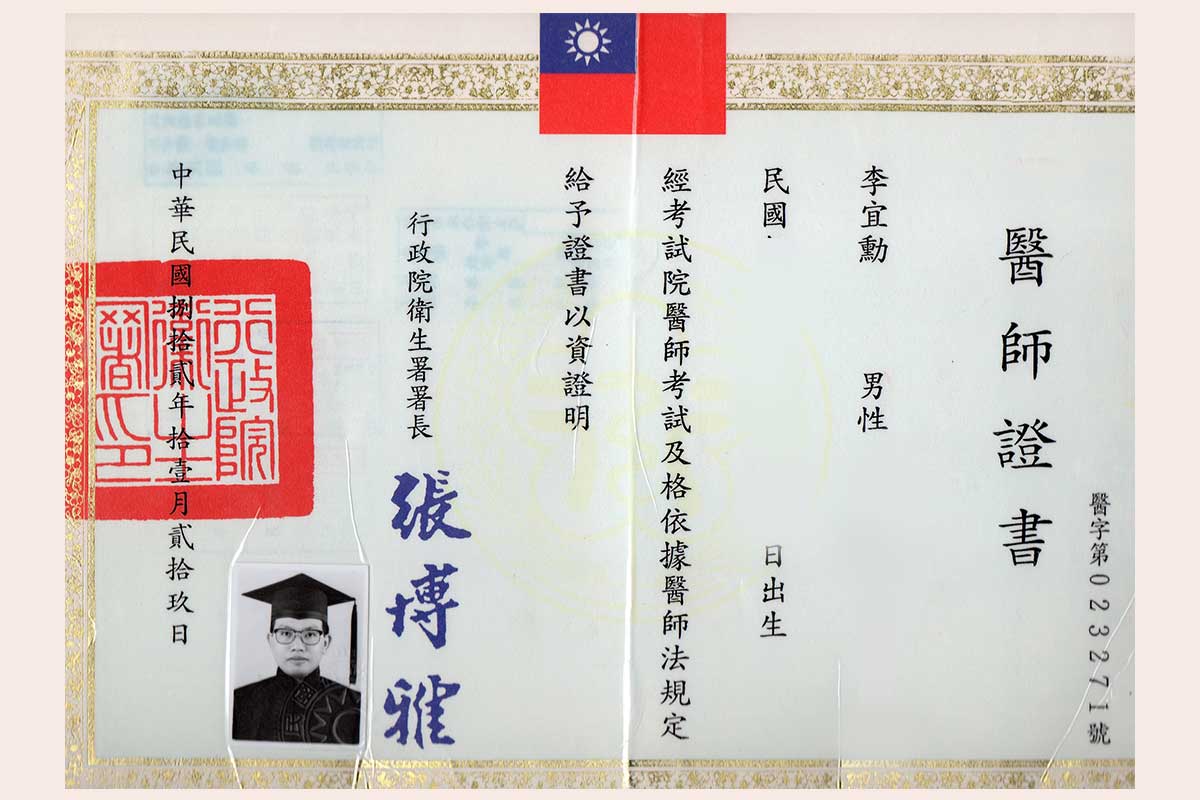 醫師證書
醫字第023271號
李宜勳 男性
民國 日出生
經考試院醫師考試及格依據醫師法規定
給予證書以資證明
行政院衛生署署長
張博雅
中華民國捌拾貳年拾壹月貳拾玖日
行政院衛生署印